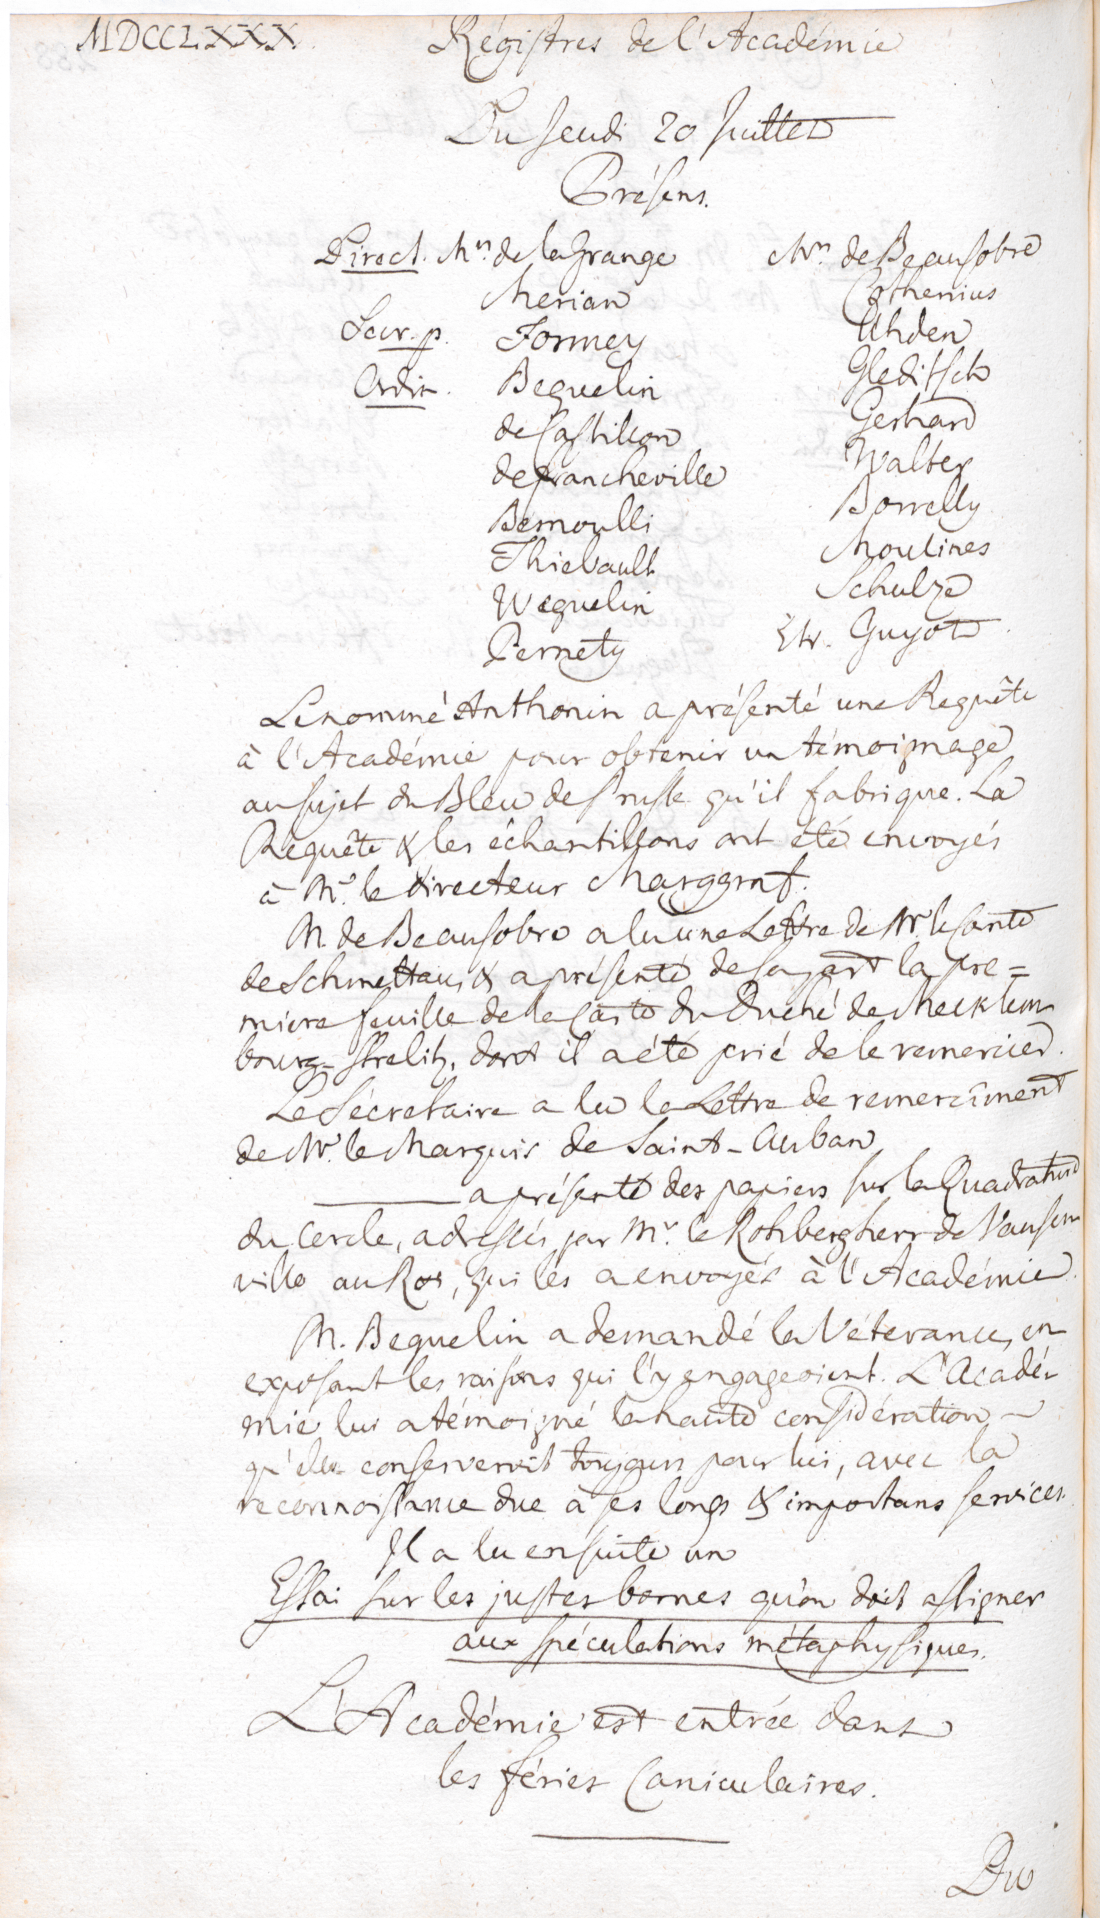 MDCCLXXX.
Régistres de l'Académie
Du Jeudi 20 Juillet
Présens.
Direct. Mrs. de la Grange
Merian
Secr. p. Formey
Ordin. Beguelin
de Castillon
de Francheville
Bernoulli
Thiebault
Weguelin
Pernety
Mrs. de Beausobre
Cothenius
Uhden
Gleditsch
Gerhard
Walter
Borrelly
Moulines
Schulze
Etr. Guyot
Le nommé Anthonin a présenté une Requête
à l'Académie pour obtenir un témoignage
au sujet du Bleu de Prusse qu'il fabrique. La
Requête & les échantillons ont été envoyés
à Mr. le Directeur Marggraf.
M. de Beausobre a lu une Lettre de Mr. le Comte
de Schmettau, & a présenté de sa part la pre=
miere feuille de la Carte du Duché de Mecklem
bourg-Strelitz, dont il a été prié de le remercier.
Le Sécretaire a lu la Lettre de remercîment
de Mr. le Marquis de Saint-Auban
a présenté des papiers sur la Quadrature
du Cercle, adressés par Mr. le Rohbergherr de Vausen
ville au Roi, qui les a envoyés à l'Académie.
M. Beguelin a demandé la Véterance, en
exposant les raisons qui l'y engageoient. L'Acadé-
mie lui a témoigné la haute considération
qu'elle conserveroit toujours pour lui, avec la
reconnoissance due à ses longs & importans services.
Il a lu ensuite un
Essai sur les justes bornes qu'on doit assigner
aux spéculations métaphysiques.
L'Académie est entrée dans
les féries Caniculaires.
Du